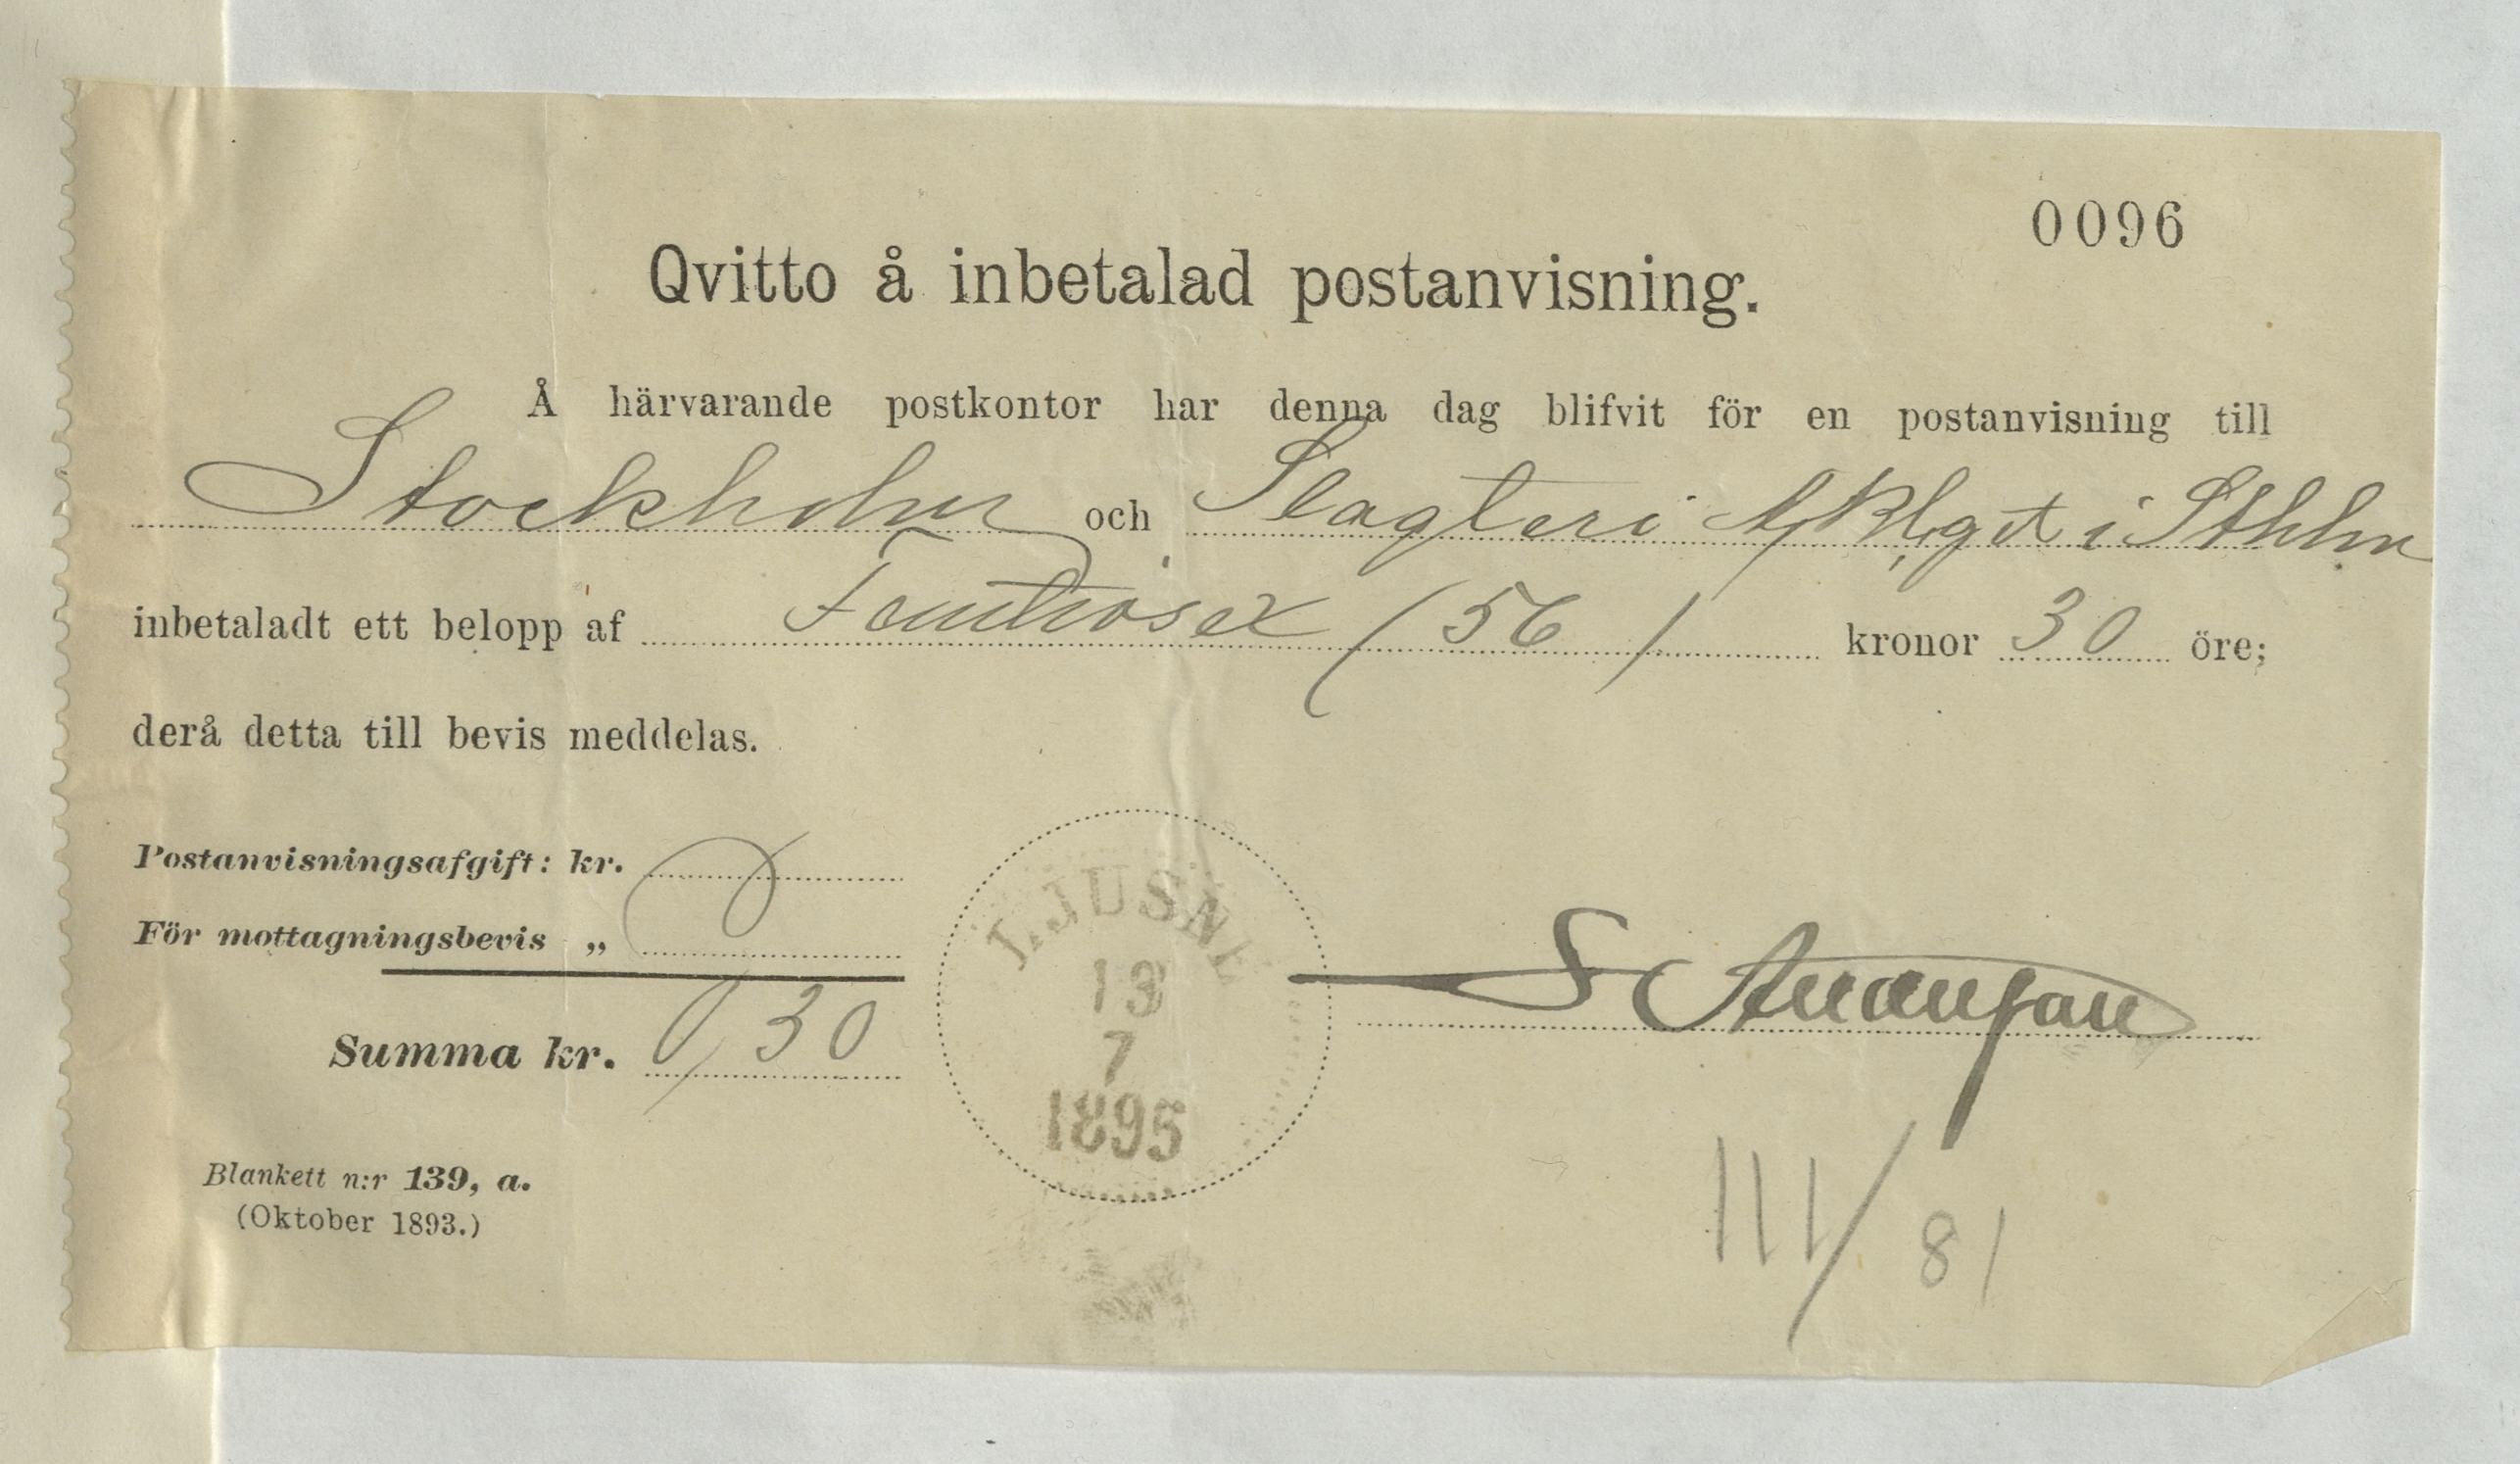 0096
Qvitto å inbetalad postanvisning.
Å härvarande postkontor har denna dag blifvit för en postanvisning till
Stockholm och Slagteri i Sthlm
inbetaladt ett belopp af Femtiosex (56) kronor 30 öre;
derå detta till bevis meddelas.
Postanvisningsafgift: kr.
För mottagningsbevis „
Summa kr. 0,30
LJUSNE
13
7
1895
Blankett n:r 139, a.
(Oktober 1893.)
111/81